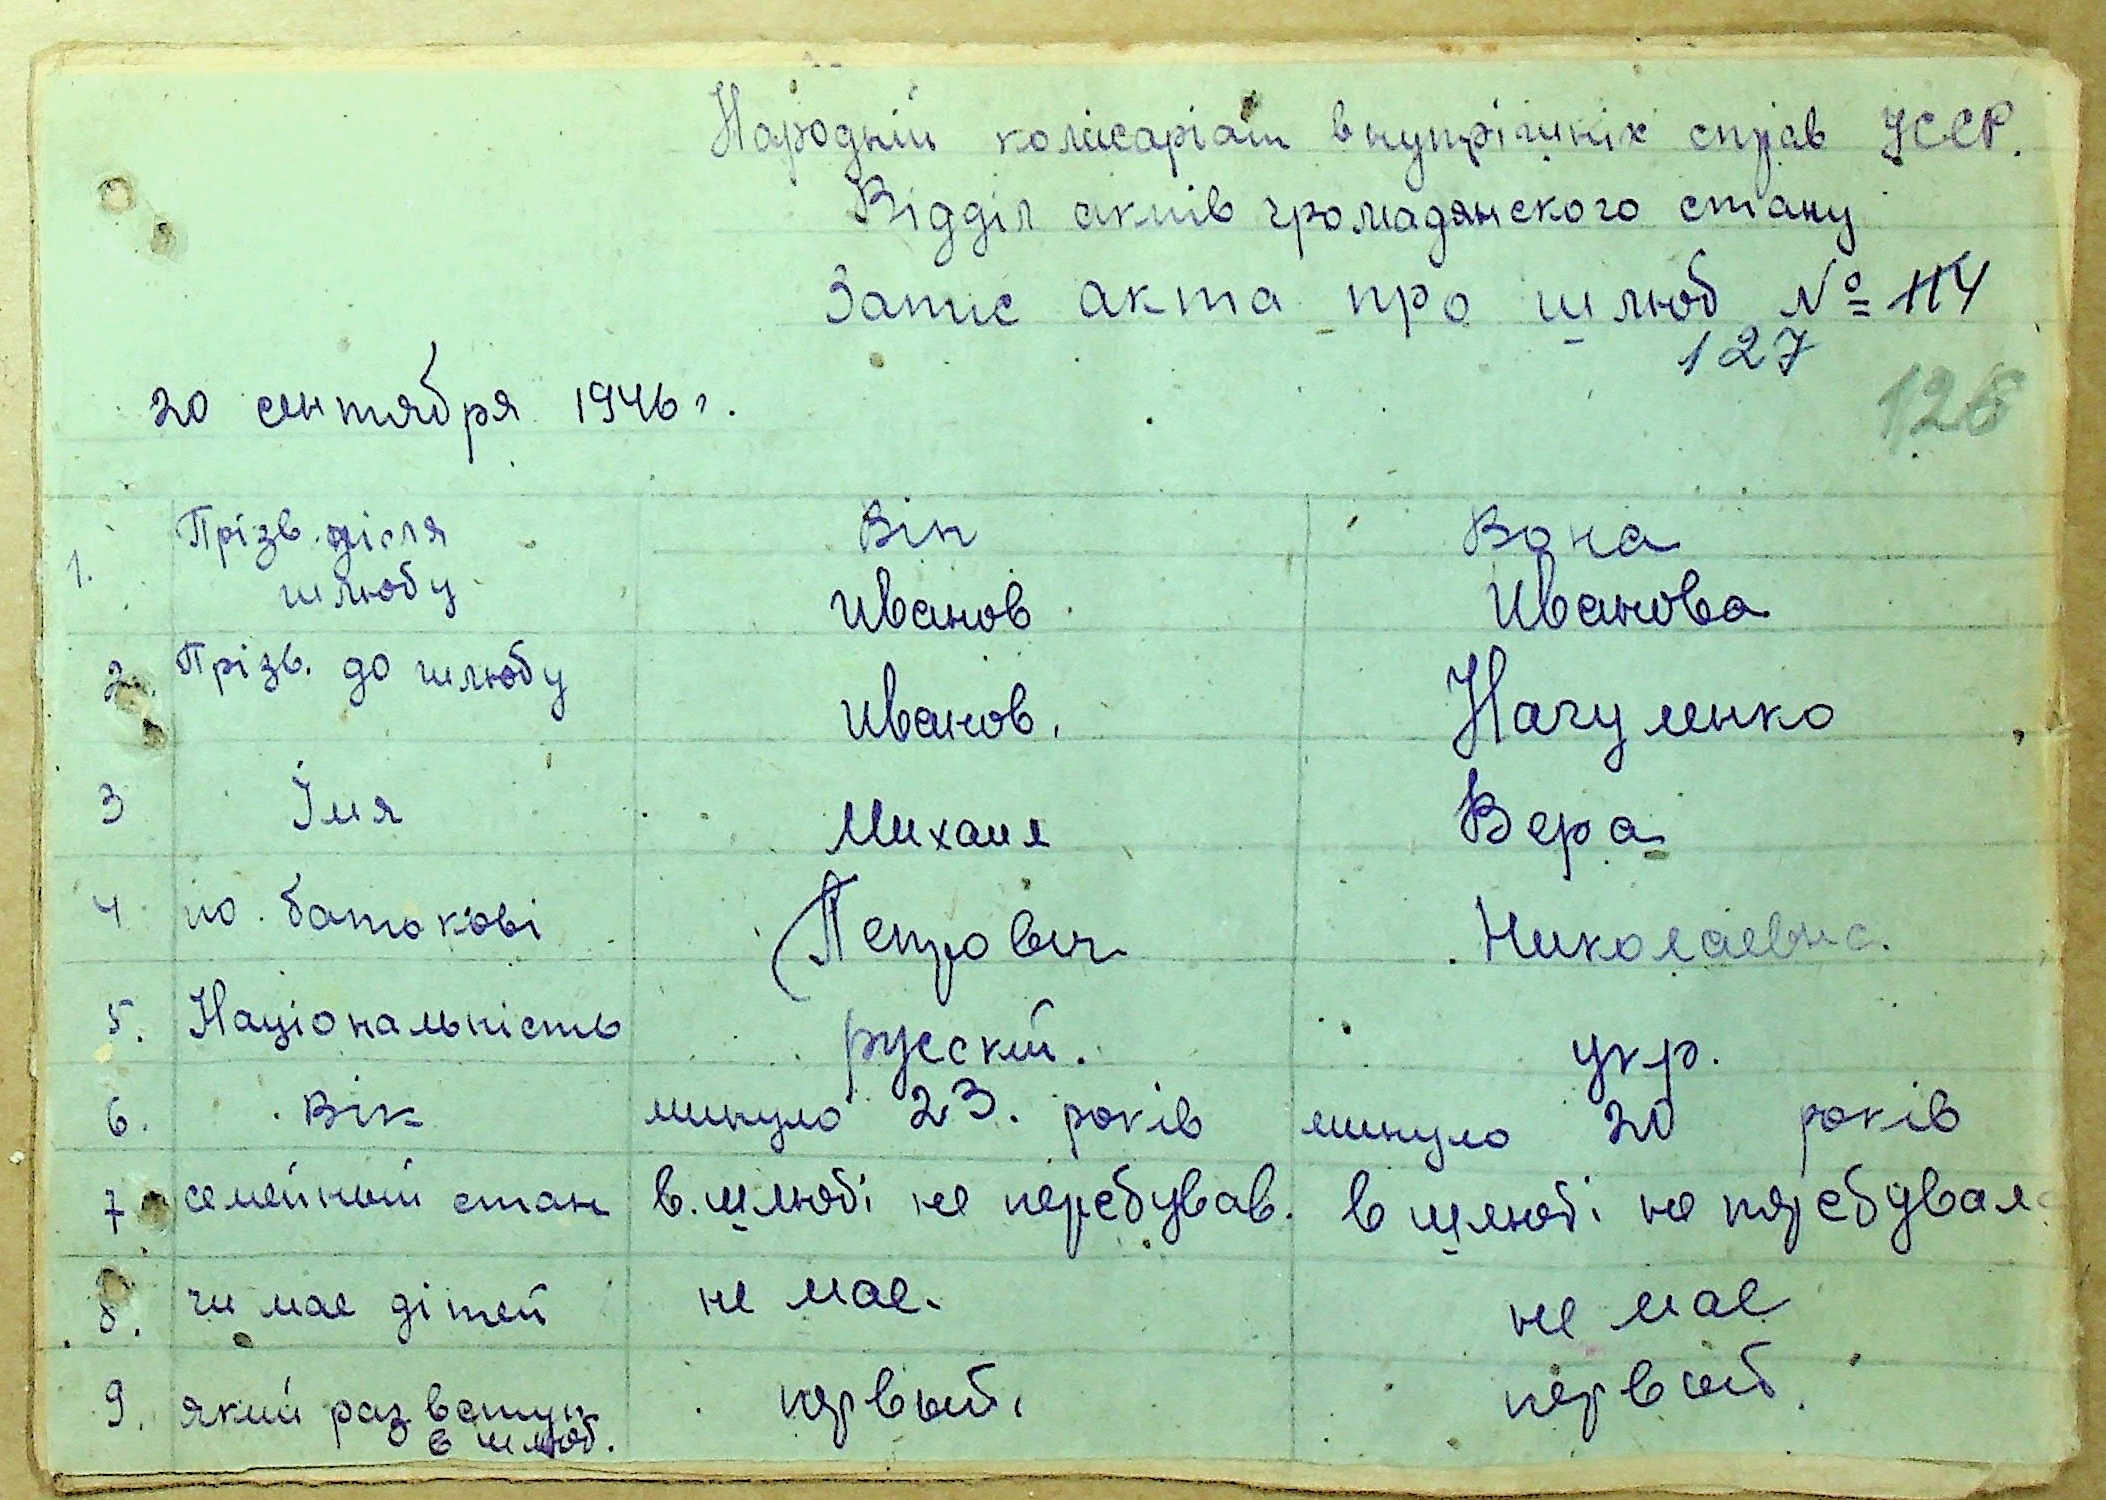 Народний комісаріат внутрішніх справ УССР.
Відділ актів громадянского стану
Запис акта про шлюб № 114
127
126
20 сентября 1946 г.
1. Прізв. після шлюбу Він Иванов Вона Иванова
2. Прізв. до шлюбу Иванов. Нагуменко
3 Імя Михаил Вера
4 по батькові Петрович Николаевна.
5. Національність русский. укр.
6. Вік минуло 23. років минуло 20 років
7 семейный стан в шлюбі не перебував. в шлюбі не перебувала
8. чи має дітей не має. не має
9. який раз вступ. в шлюб. первый. первый.